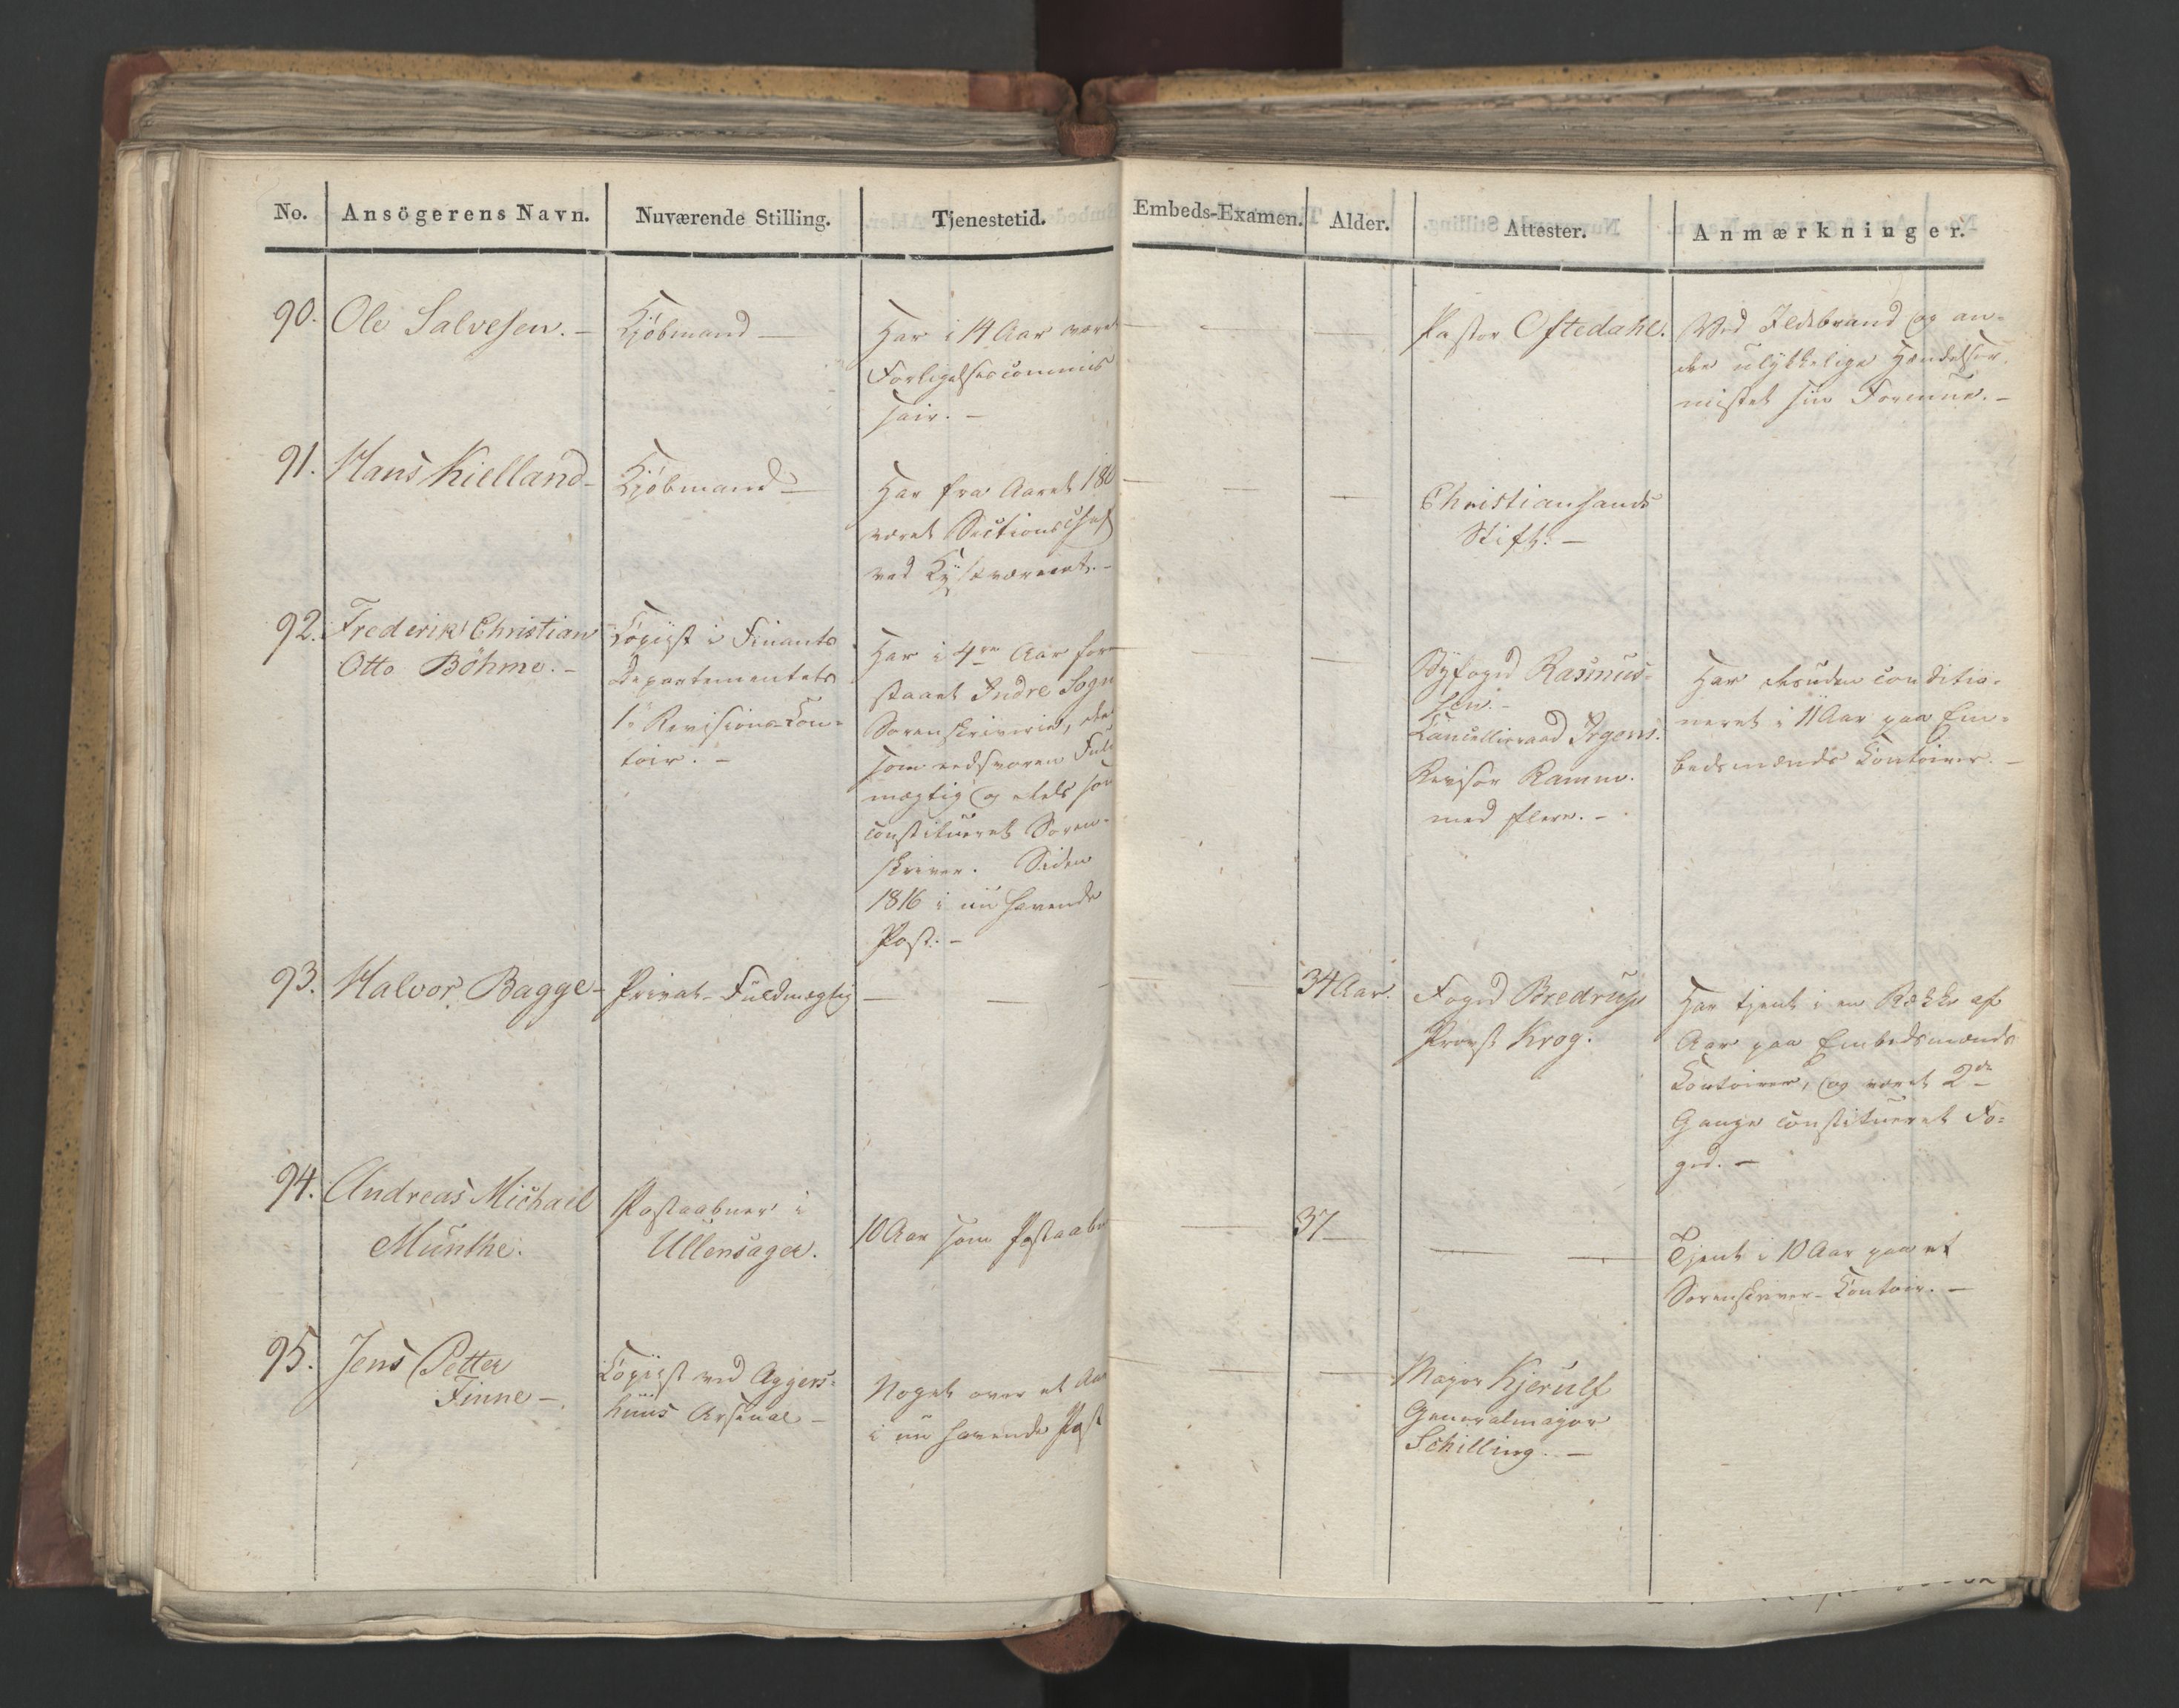 No. Ansögerens Navn. Nuværende Stilling. Tjenestetid. Embeds-Examen. Alder. Attester. Anmærkninger.
90. Ole Salvesen. –
Kjöbmand –
Har i 14 Aar været
Forligelsescommis
sair. –
Pastor Oftedahl.
Ved Ildebrand og an-
dre ulykkelige Hændelser
mistet sin Formue. –
91. Hans Kielland –
Kjöbmand –
Har fra Aaret 180
været Sectionschef
ved Kystværnet. –
Christiansands
Stift. –
92. Frederik Christian
Otto Böhme. –
Copiist i Finants
Departementets
1ste Revisions-Con-
toir. –
Har i 4re Aar fore
staaet Indre Sogn
Sorenskriverie, deels
som eedsvoren Fuld
mægtig og deels som
constitueret Soren-
skriver. Siden
1816 i nu havende
Post. –
Byfoged Rasmus-
sen. –
Cancelliraad Irgens.
Revisor Ramm.
med flere. –
Har desuden conditio-
neret i 11 Aar paa Em-
bedsmænds Contoirer. –
93. Halvor Bagge –
Privat-Fuldmægtig
34 Aar.
Foged Bredrup
Provst Krog.
Har tjent i en Række af
Aar paa Embedsmænds
Contoirer, og været 2de
Gange constitueret Fo-
ged. –
94. Andreas Michael
Munthe.
Postaabner i
Ullensager.
10 Aar som Postaabn
37
Tjent i 10 Aar paa et
Sorenskriver-Contoir. –
95. Jens Petter
Finne –
Copiist ved Aggers-
huus Arsenal –
Noget over et Aar
i nu havende Post
Major Kjerulf
Generalmajor
Schilling. –